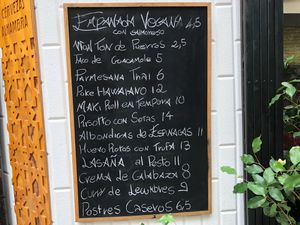 CERVEZAS
ALHAMBRA
EMPANADA VEGANA 4,5
CON GALMONESO
WON TON DE PUERROS 2,5
TACO DE GUACAMOLE 5
PARMESANA THAI 6
POKE HAWAIANO 12
MAKI ROLL EN TEMPURA 10
RISOTTO CON SETAS 14
ALBONDIGAS DE ESPINACAS 11
HUEVO ROTOS CON TRUFA 13
LASAÑA al PESTO 11
CREMA DE CALABAZA 8
CURRY DE LEGUMBRES 9
POSTRES CASEROS 6,5